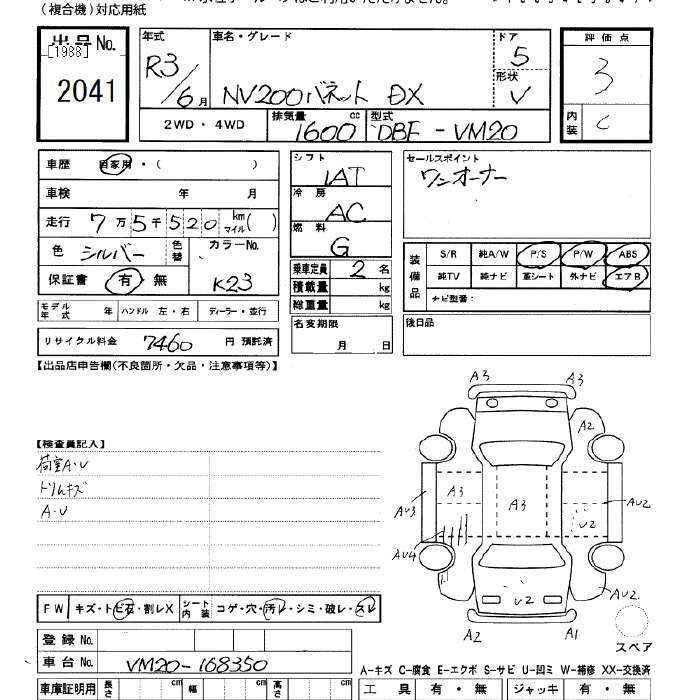 (複合機)対応用紙
出品No.
[1988]
2041
年式 車名・グレード ドア
R3/6月 NV200バネット DX 5
形状 V
2WD・4WD 排気量 1600 cc 型式 DBF-VM20
評価点
3
内装 C
車歴 自家用・( )
車検 年 月
走行 7万5千520 km マイル( )
色 シルバー 色替 カラーNo.
保証書 有 無 K23
モデル年式 年 ハンドル 左・右 ディーラー・並行
リサイクル料金 7460 円 預託済
シフト
IAT
冷房
AC
燃料
G
乗車定員 2 名
積載量 kg
総重量 kg
名変期限
月 日
セールスポイント
ワンオーナー
装備品 S/R 純A/W P/S P/W ABS
純TV 純ナビ 革シート 外ナビ エアB
ナビ型番:
後日品
【出品店申告欄(不良箇所・欠品・注意事項等)】
【検査員記入】
荷室A・U
トリムキズ
A・U
A3 A3
A2
A3 A3 AU3 AU2
U2
AU4
U2 AU2
A2 A1
スペア
FW キズ・トビ石・割レX シート内装 コゲ・穴・汚レ・シミ・破レ・スレ
登録No.
車台No. VM20-168350
A-キズ C-腐食 E-エクボ S-サビ U-凹ミ W-補修 XX-交換済
車庫証明用 長さ cm 幅 cm 高さ cm
工具 有・無 ジャッキ 有・無